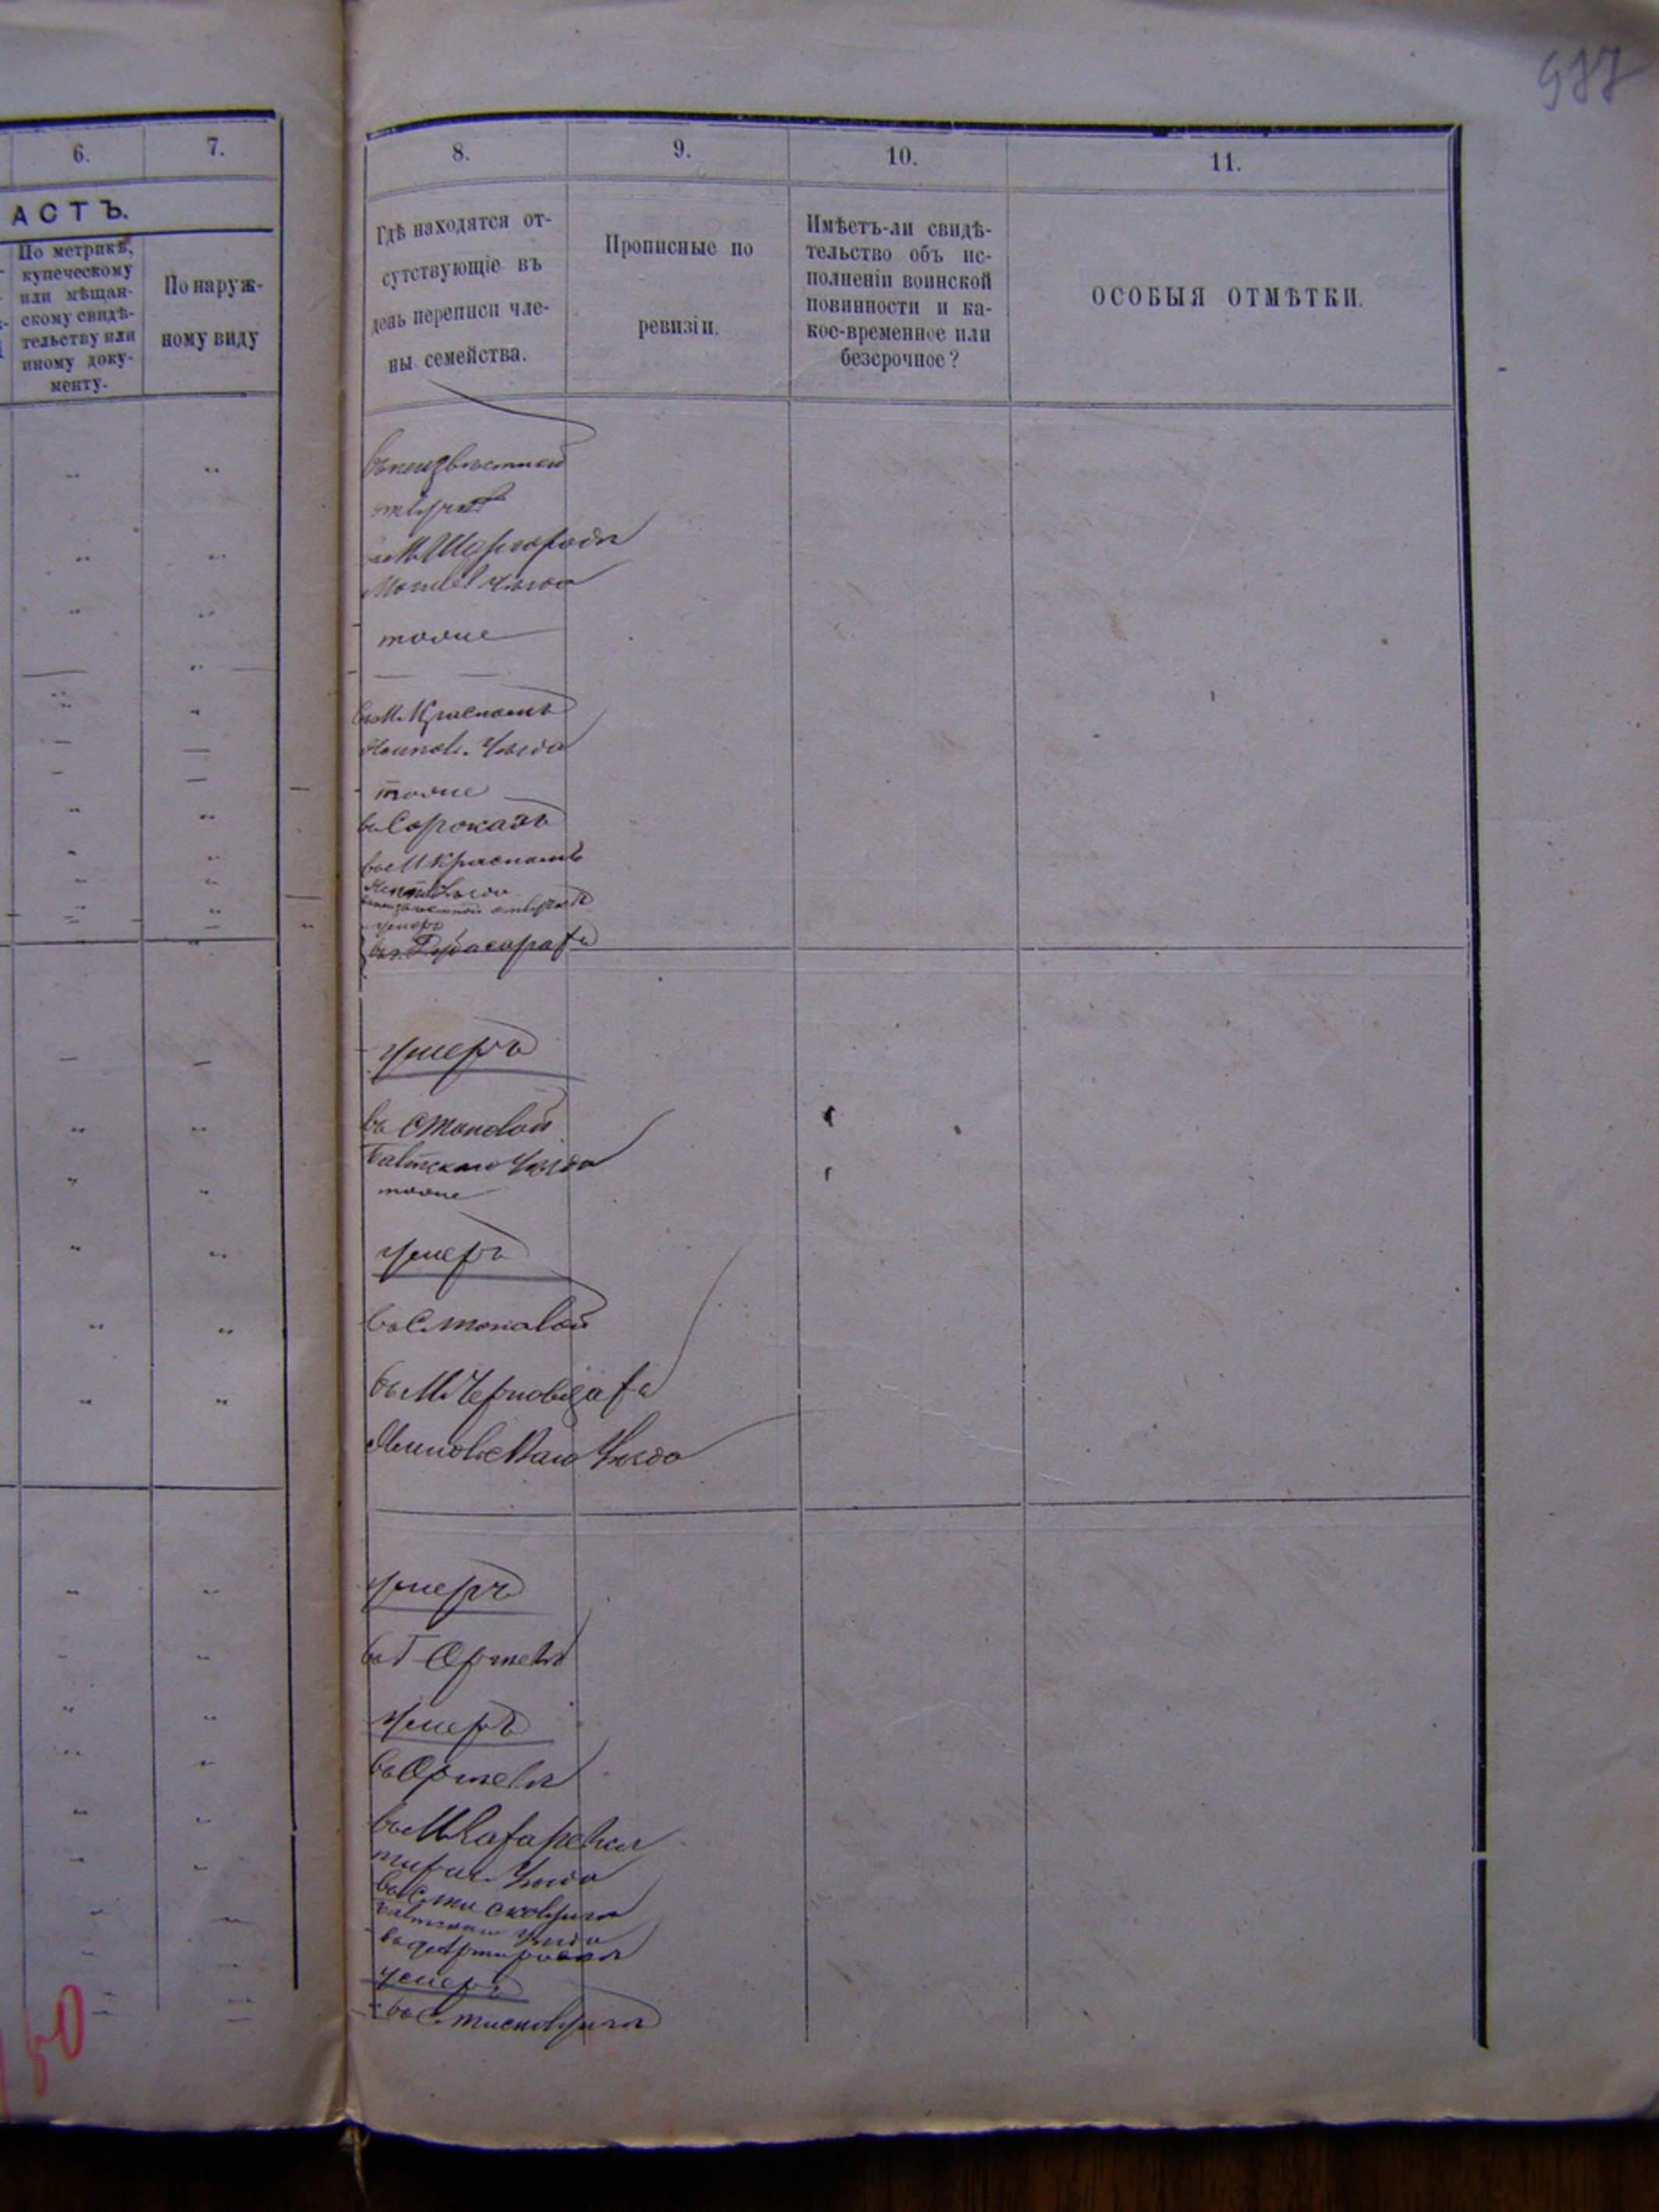 977
6.
7.
АСТЪ.
По метрикѣ,
купеческому
или мѣщан-
скому свидѣ-
тельству или
иному доку-
менту.
По наруж-
ному виду
8.
9.
10.
11.
Гдѣ находятся от-
сутствующіе въ
день переписи чле-
ны семейства.
Прописные по
ревизіи.
Имѣетъ-ли свидѣ-
тельство объ ис-
полненіи воинской
повинности и ка-
кое-временное или
безсрочное?
ОСОБЫЯ ОТМѢТКИ.
въ неизвѣстной
отлучкѣ
въ М. Шаргородѣ
Могилев. уѣзда
тоже
въ М. Красномъ
Ямпов. уѣзда
тоже
въ Сорокахъ
въ М Красномъ
уѣзда
въ неизвѣстной отлучкѣ
умеръ
умеръ
въ с
Балтскаго уѣзда
тоже
умеръ
въ с.
въ М. Черновцахъ
Ямповскаго уѣзда
умеръ
въ Г Оргѣевѣ
умеръ
въ Оргѣевѣ
въ М.
уѣзда
въ с.
уѣзда
умеръ
въ с.
150